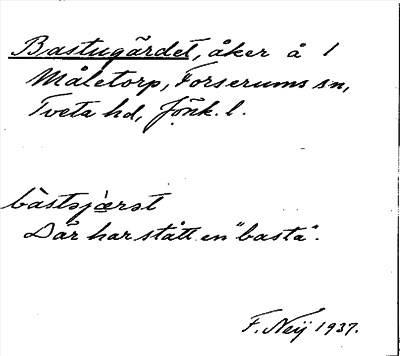 Bastugärdet, åker å 1
Måletorp, Forserums sn,
Tveta hd, Jönk. l.
Där har stått en "basta".
F. Neij 1937.